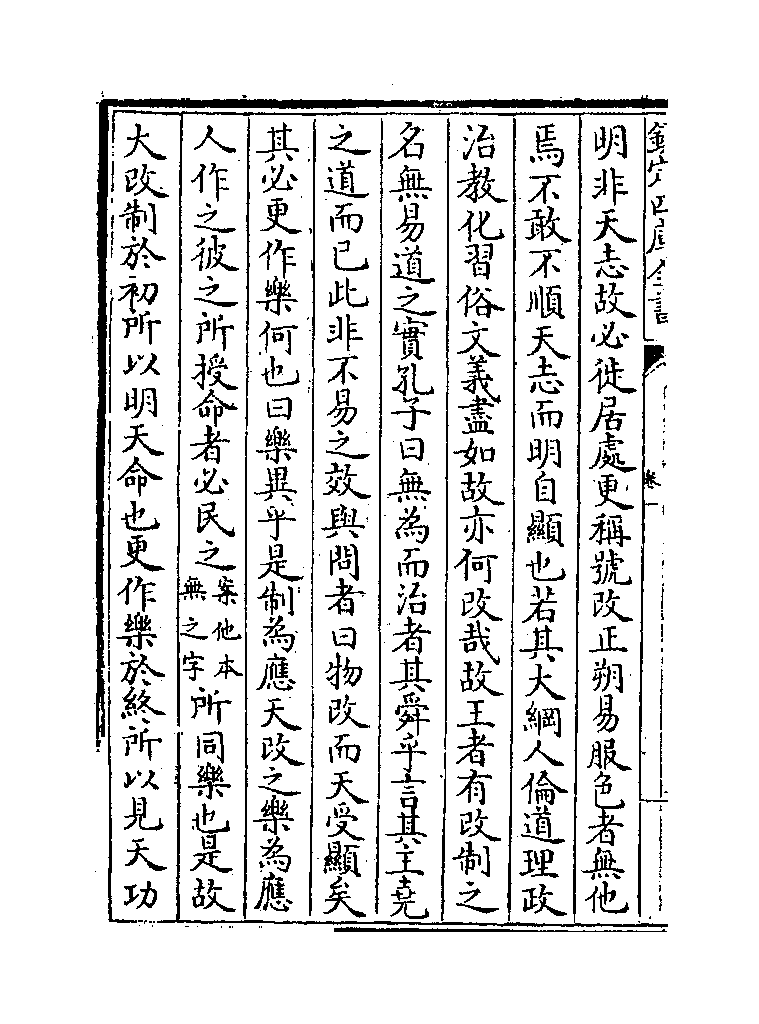 欽定四庫全書
卷一
明非天志故必徙居處更稱號改正朔易服色者無他
焉不敢不順天志而明自顯也若其大綱人倫道理政
治教化習俗文義盡如故亦何改哉故王者有改制之
名無易道之實孔子曰無為而治者其舜乎言其主堯
之道而已此非不易之效與問者曰物改而天受顯矣
其必更作樂何也曰樂異乎是制為應天改之樂為應
人作之彼之所授命者必民之案他本無之字所同樂也是故
大改制於初所以明天命也更作樂於終所以見天功